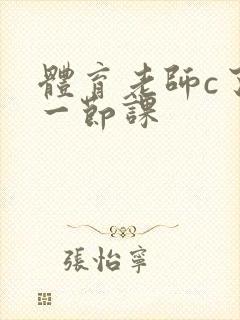 體育老師c了
一節課
張怡寧